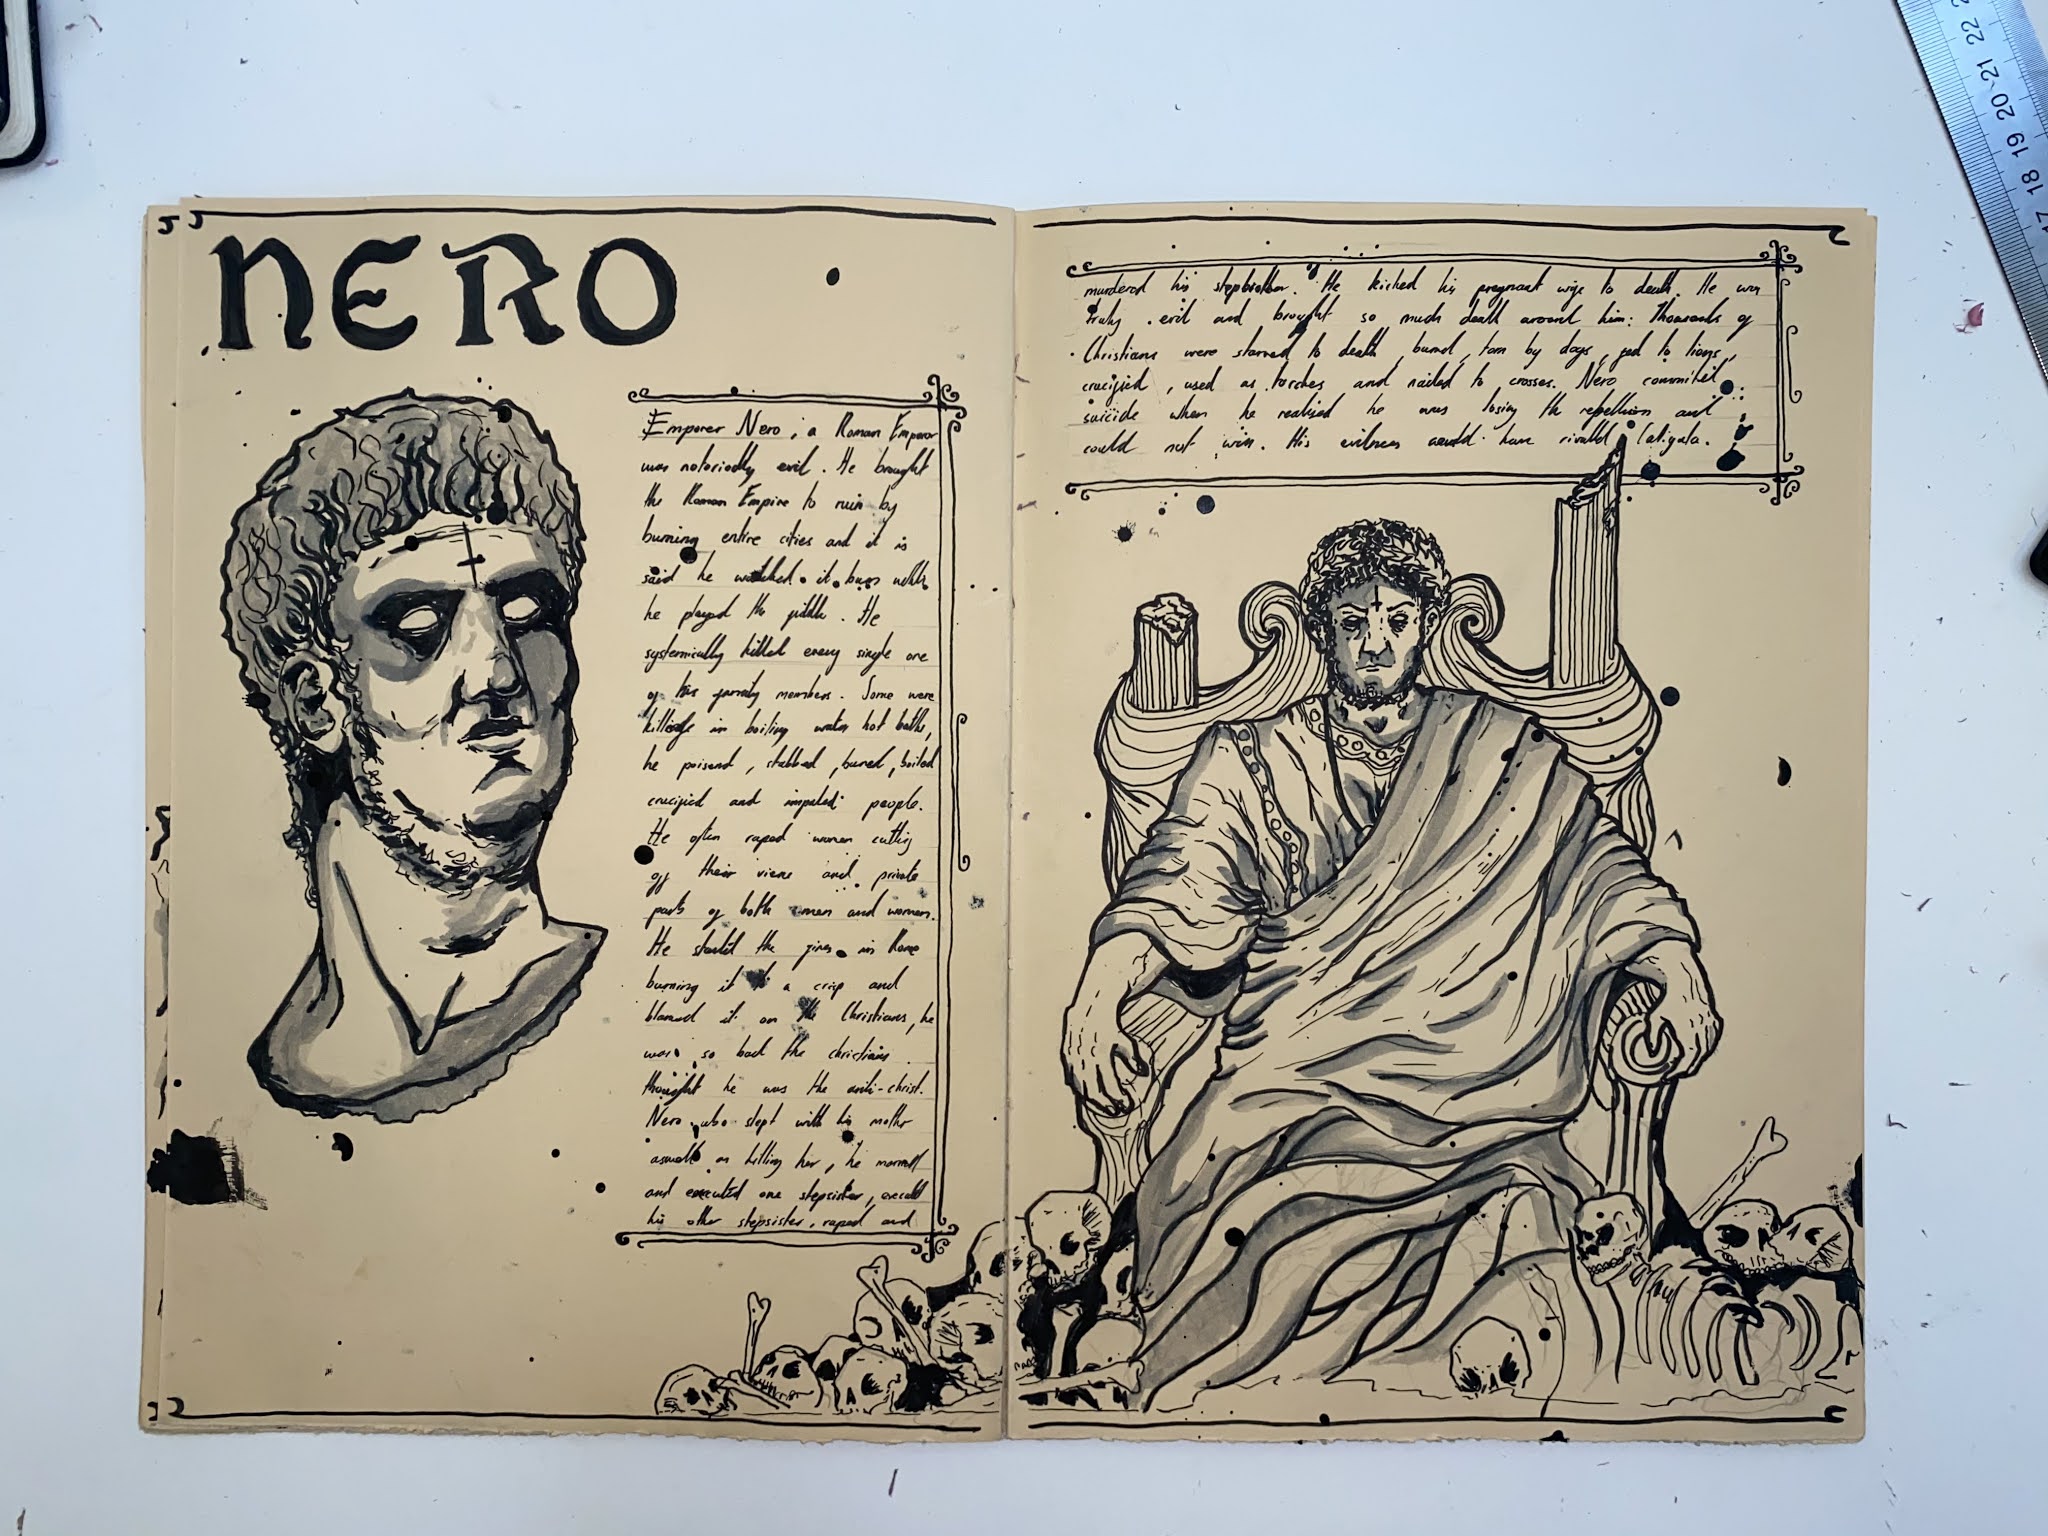 NERO
Emperer Nero, a Roman Emperor
was notoriodly evil. He brought
the Roman Empire to ruin by
burning entire cities and it is
said he watched it burn while
he played the fiddle. He
systemically killed every single one
of his family members. Some were
killed in boiling water hot baths,
he poisend, stabbed, buried, boiled
crucified and impaled people.
He often raped women cutting
off their and private
parts of both men and women.
He started the fires in Rome
burning it a crisp and
blamed it on the Christians, he
was so bad the christians
thought he was the anti-christ.
Nero who slept with his mother
aswell as killing her, he married
and executed one stepsister,
his other stepsister, raped and
murdered his stepbrother. He kicked his pregnant wife to death. He was
truly evil and brought so much death around him: Thousands of
Christians were starved to death, burned, torn by dogs, fed to lions,
crucified, used as torches and nailed to crosses. Nero commited
suicide when he realised he was losing the rebellion and
could not win. His evilness could have rivalld Caligula.
17 18 19 20 21 22